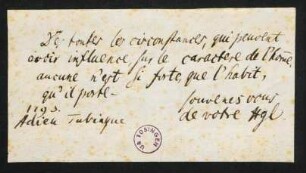 De toutes les circonstances, qui peuvent
avoir influence sur le caractere de l'home
aucune n'est si forte que l'habit,
qu'il porte.
1793.
Adieu Tubingue
Souvenez vous
de votre Hgl
UB TÜBINGEN